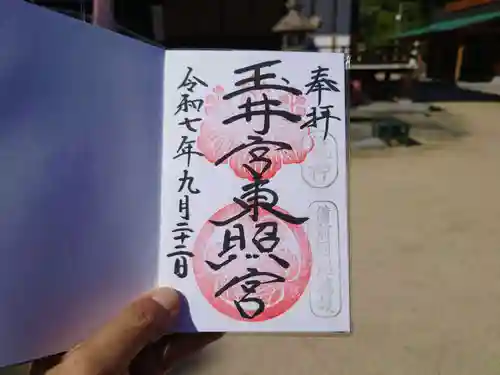 奉拝
玉井宮東照宮
令和七年九月二十二日